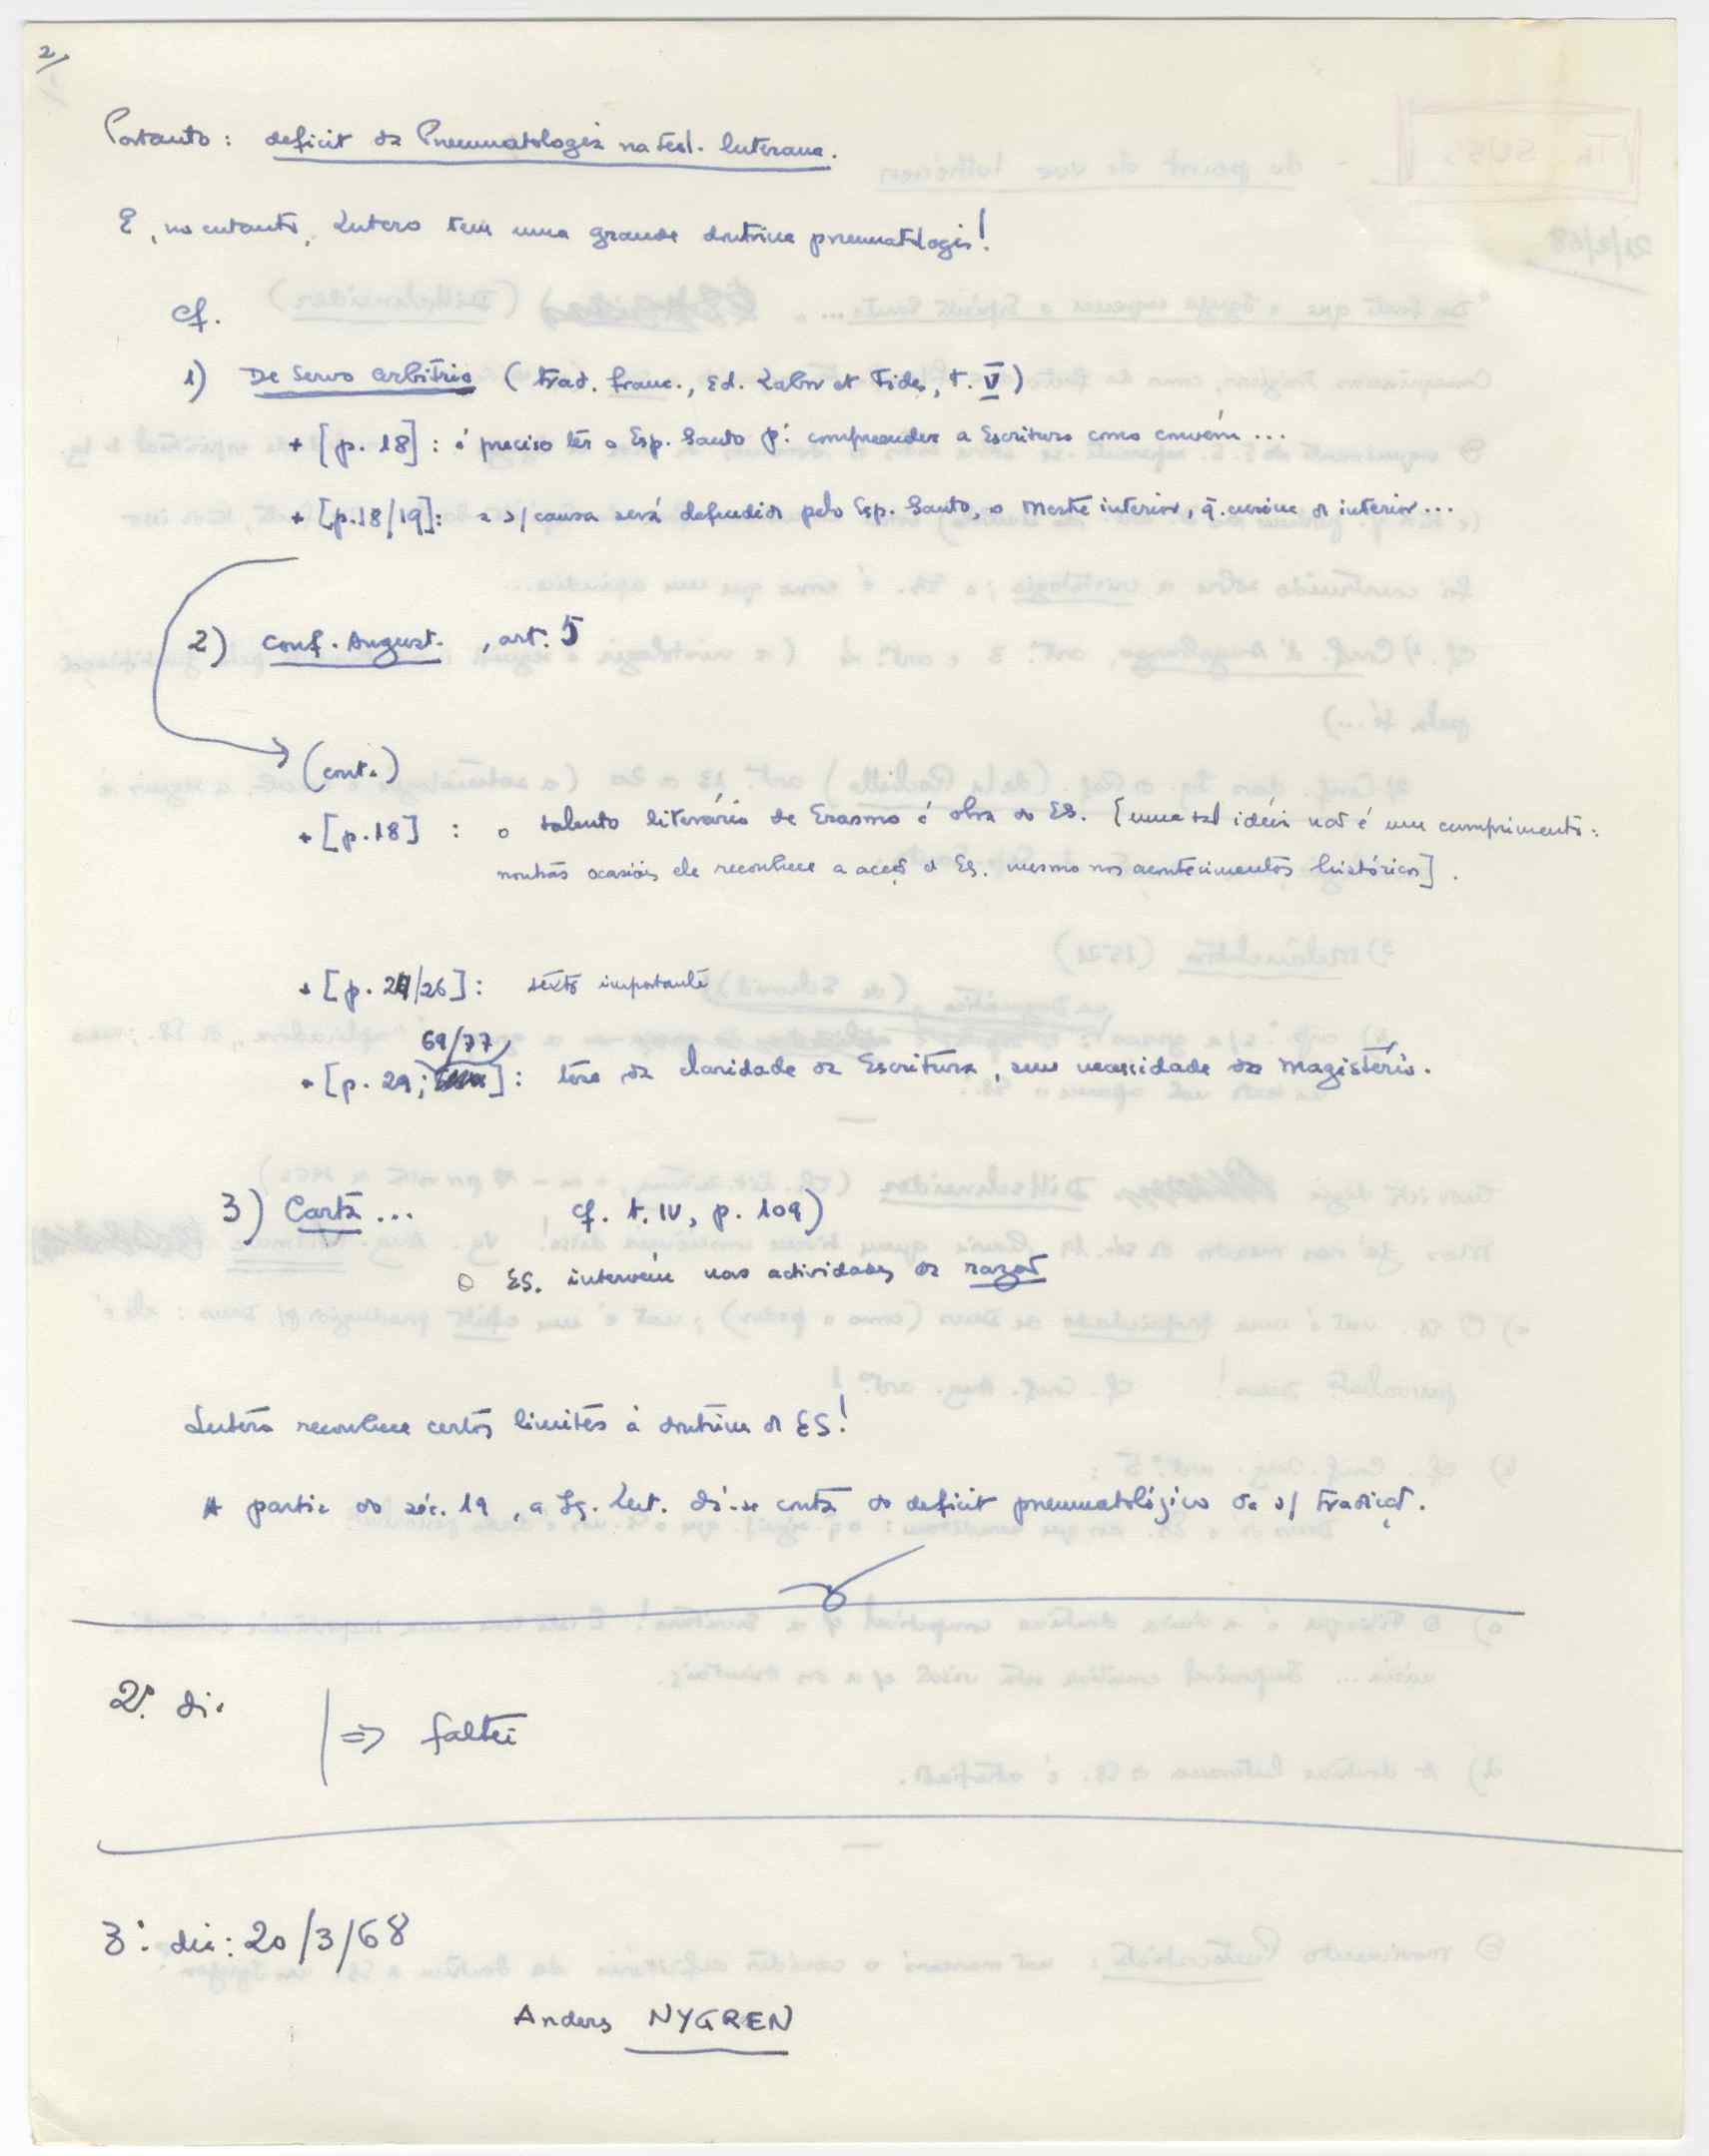 2/
Portanto: deficit da Pneumatologia na teol. luterana.
E, no entanto, Lutero tem uma grande doutrina pneumatológica!
cf.
1) De Servo Arbitrio (trad. franc., Ed. Labor et Fides, t. V)
+ [p. 18]: é preciso ter o Esp. Santo p.ª compreender a Escritura como convém...
+ [p. 18/19]: a s/ causa será defendida pelo Esp. Santo, o Mestre interior, q. ensina do interior...
2) Conf. August., art. 5
(cont.)
+ [p. 18] : o talento literário de Erasmo é obra do ES. [uma tal ideia não é um cumprimento:
noutras ocasiões ele reconhece a acção do ES. mesmo nos acontecimentos históricos].
+ [p. 24/26]: texto importante
69/77
+ [p. 29; ]: tese da claridade da Escritura, sem necessidade do Magistério.
3) Carta... cf. t. IV, p. 109)
O ES. intervém nas actividades da razão
Lutero reconhece certos limites à doutrina do ES!
A partir do séc. 19, a Ig. Lut. dá-se conta do deficit pneumatológico da s/ tradição.
2.º dia
=> faltei
3.º dia: 20/3/68
Anders NYGREN